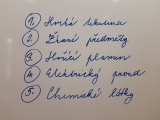 1. Horká tekutina
2. Žhavé předměty
3. Hořící plamen
4. Elektrický proud
5. Chemické látky